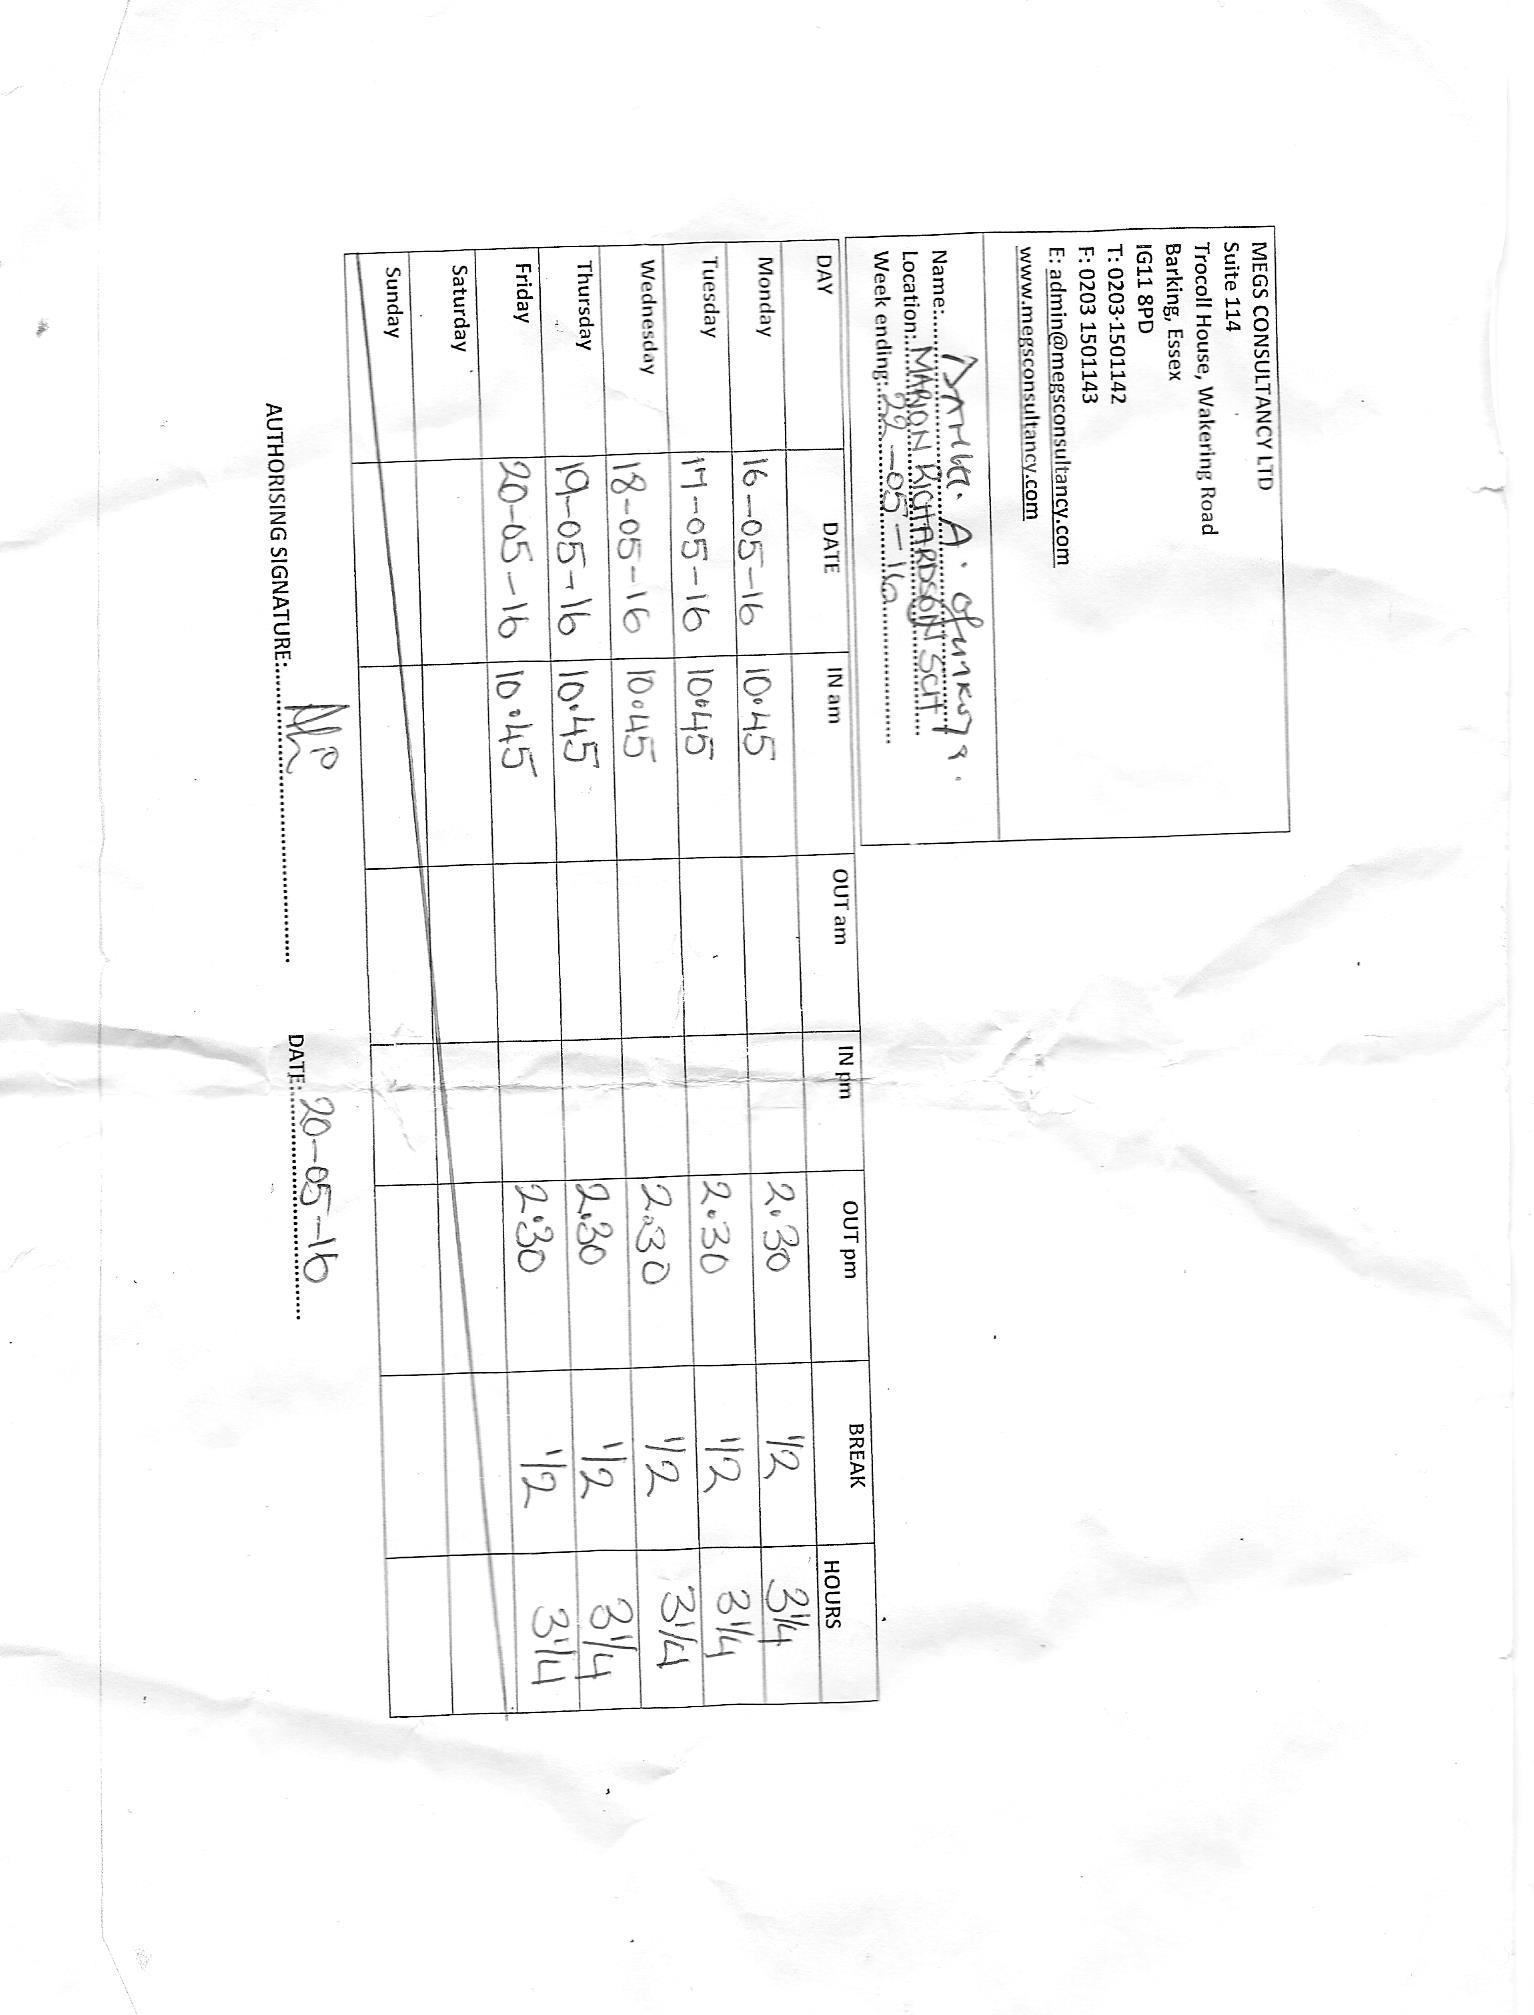 MEGS CONSULTANCY LTD
Suite 114
Trocoll House, Wakering Road
Barking, Essex
IG11 8PD
T: 0203 1501142
F: 0203 1501143
E: admin@megsconsultancy.com
www.megsconsultancy.com
Name: A.
Location: MARION RICHARDSON SCH
Week ending: 22-05-16
DAY DATE IN am OUT am IN pm OUT pm BREAK HOURS
Monday 16-05-16 10.45 2.30 1/2 3 1/4
Tuesday 17-05-16 10.45 2.30 1/2 3 1/4
Wednesday 18-05-16 10.45 2.30 1/2 3 1/4
Thursday 19-05-16 10.45 2.30 1/2 3 1/4
Friday 20-05-16 10.45 2.30 1/2 3 1/4
Saturday
Sunday
AUTHORISING SIGNATURE: DATE: 20-05-16